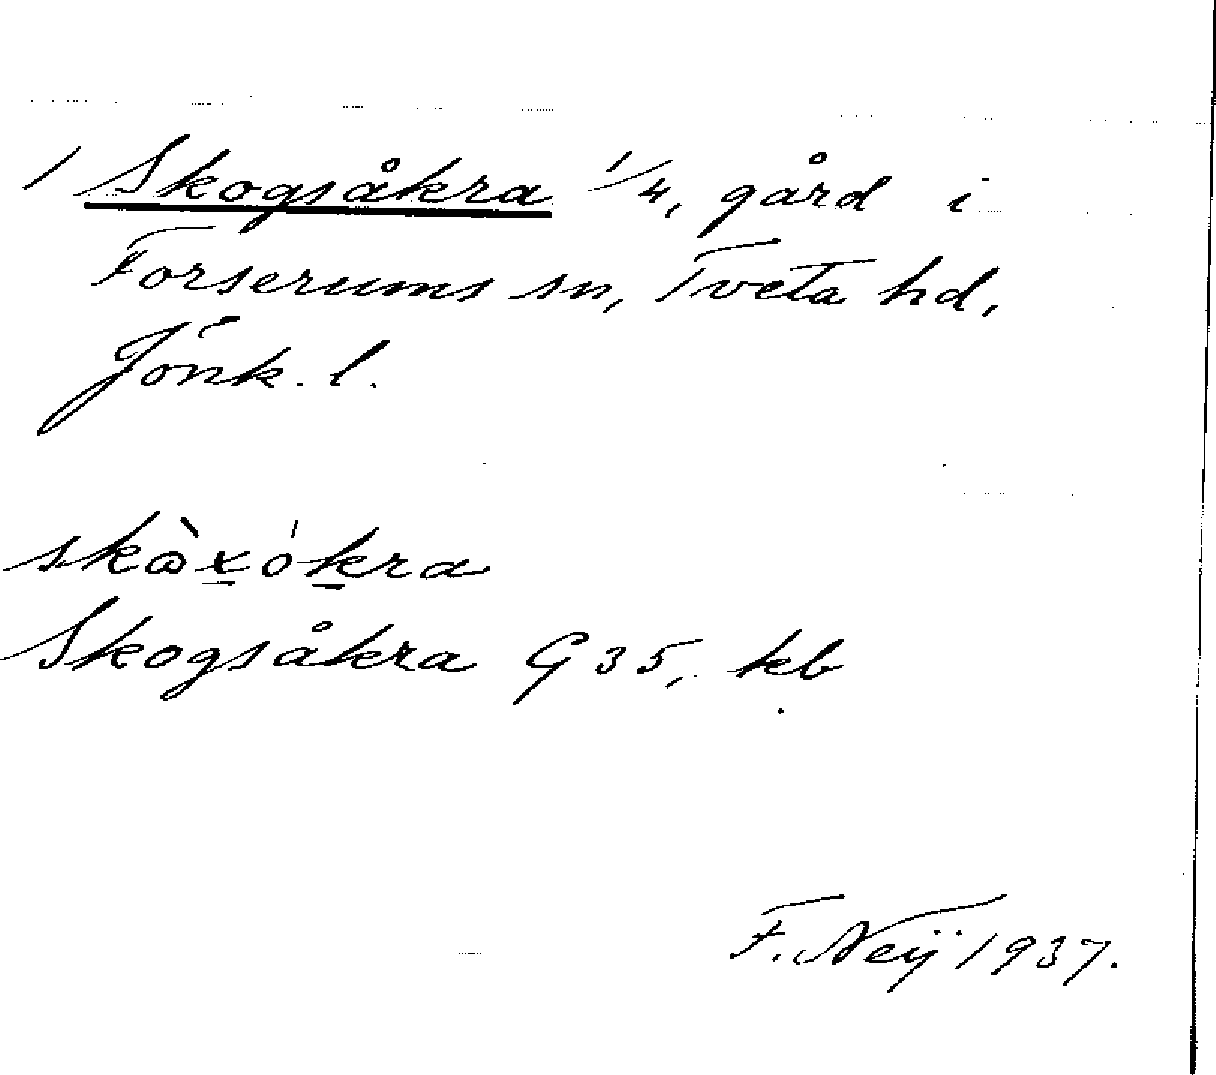 / Skogsåkra 1/4, gård i
Forserums sn, Tveta hd,
Jönk. l.
Skogsåkra G 35, kb
F. Neij 1937.